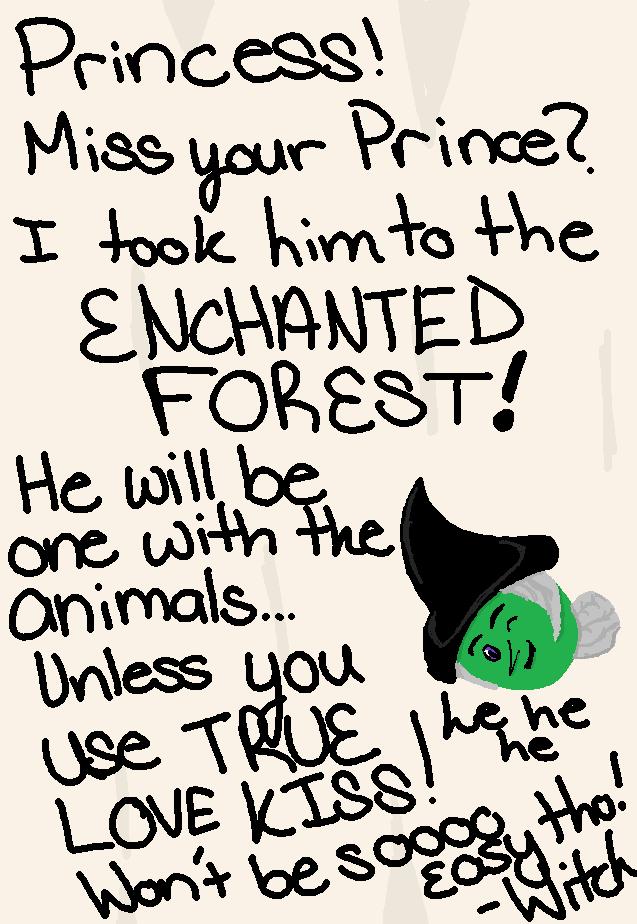 Princess!
Miss your Prince?
I took him to the
ENCHANTED
FOREST!
He will be
one with the
animals...
Unless you
use TRUE
LOVE KISS!
he he
he
Won't be soooo easy tho!
-Witch